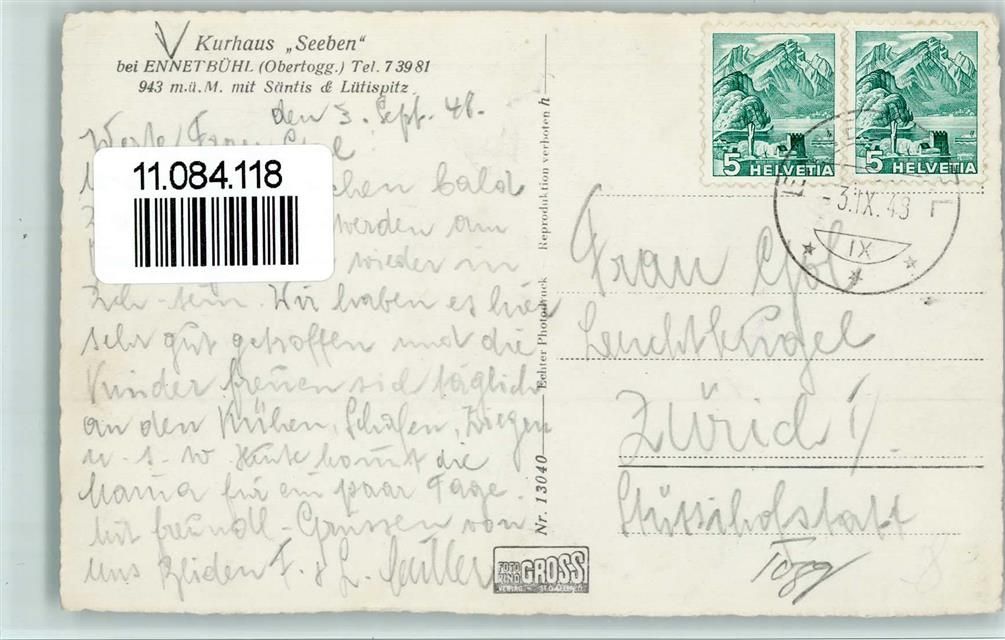 Kurhaus „Seeben"
bei ENNETBÜHL (Obertogg.) Tel. 7 39 81
943 m.ü.M. mit Säntis & Lütispitz
den 3. Sept. 48.
Werte Frau
11.084.118
bald
werden am
wieder in
Zch sein. Wir haben es hier
sehr gut getroffen und die
Kinder freuen sich täglich
an den Kühen, Schafen, Ziegen
u. s. w Heute kommt die
Mama für ein paar Tage.
Mit freundl. Grüssen von
uns beiden F. & L.
Nr. 13040 Echter Photodruck Reproduktion verboten h
FOTO GROSS
VERLAG ST. GALLEN
5 HELVETIA
5 HELVETIA
-3.IX.48
IX
Frau
Leuchtkugel
Zürich 1
Stüssihofstatt
Togg